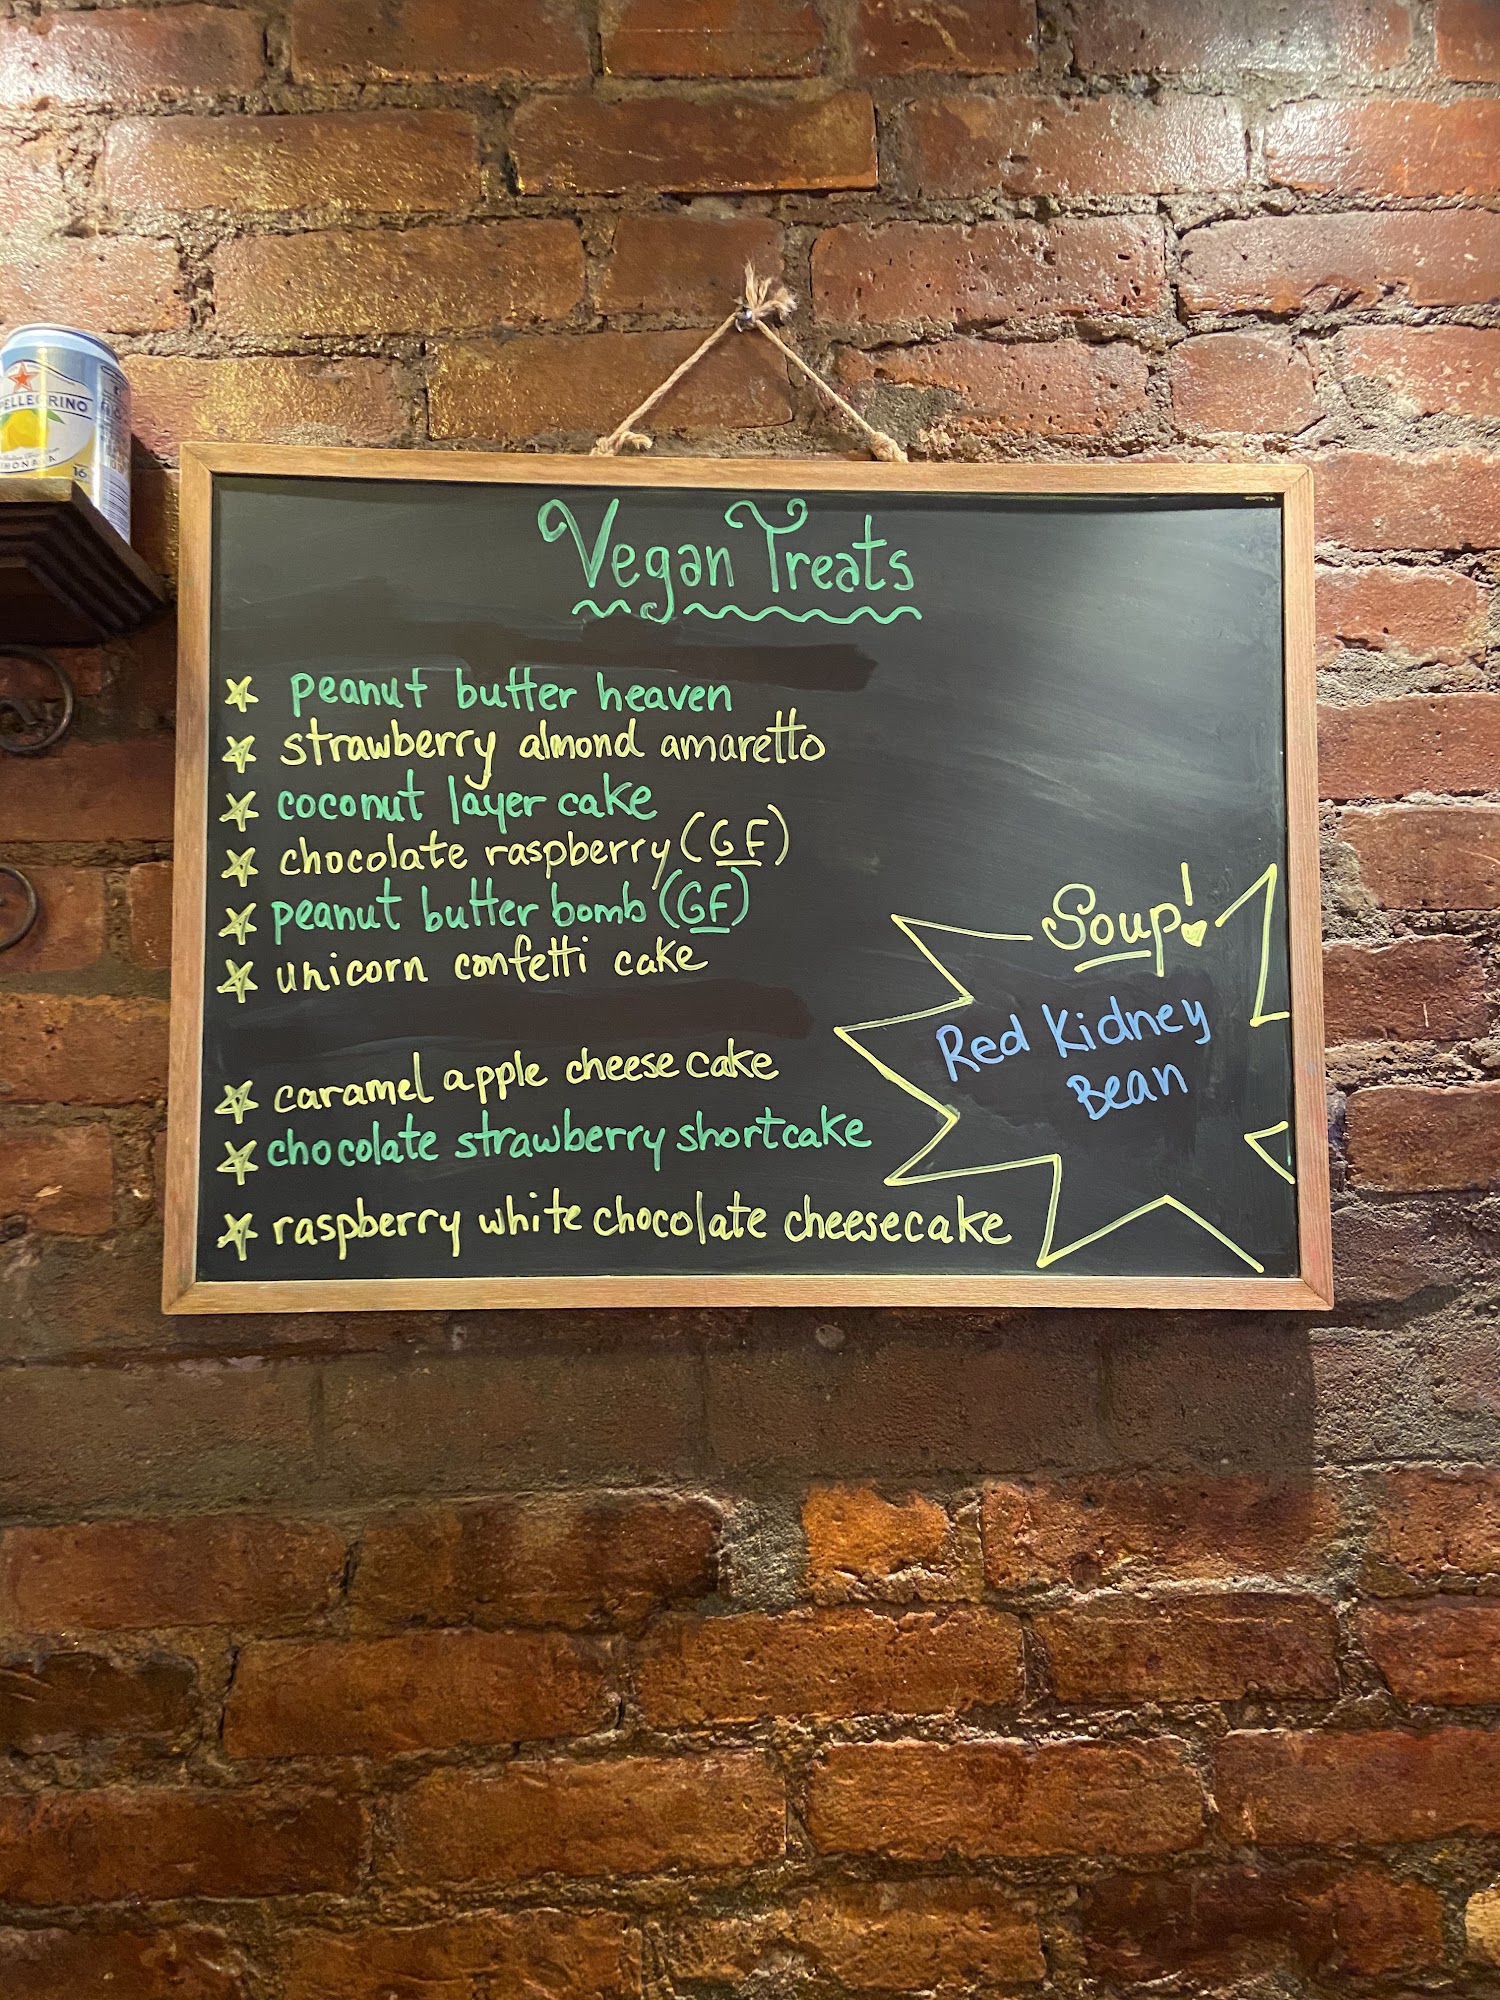 PELLEGRINO
16
Vegan Treats
peanut butter heaven
strawberry almond amaretto
coconut layer cake
chocolate raspberry (GF)
peanut butter bomb (GF)
unicorn confetti cake
caramel apple cheese cake
chocolate strawberry shortcake
raspberry white chocolate cheesecake
Soup!
Red Kidney
Bean